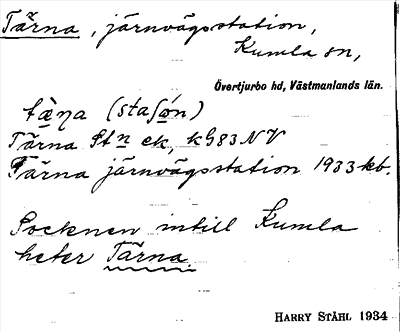 Tärna, järnvägsstation,
Kumla sn,
Övertjurbo hd, Västmanlands län.
tä̀ṇa (staʃón)
Tärna Stn ek, kG83 NV
Tärna järnvägsstation 1933 kb.
Socknen intill Kumla
heter Tärna
HARRY STÅHL 1934